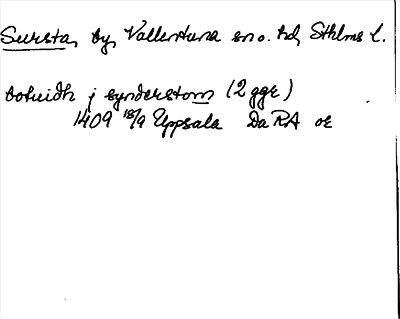 Sursta, by, Vallentuna sn o. hd, Sthlms l.
botuidh j synderstom (2 ggr)
1409 18/9 Uppsala DaRA or